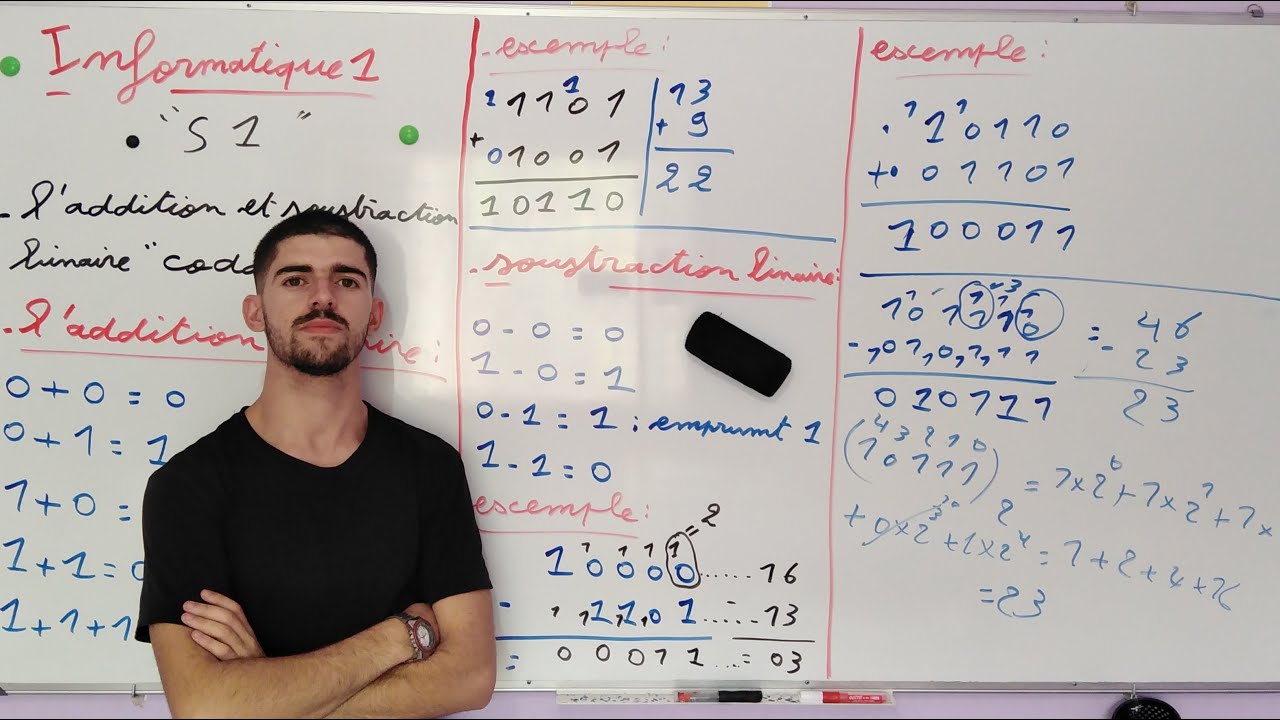 Informatique 1
"S1"
- l'addition et soustraction
binaire "coda
- l'addition aire :
0 + 0 = 0
0 + 1 = 1
1 + 0 =
1 + 1 = 0
1 + 1 + 1
- escemple :
1 1
1 1 0 1
+
0 1 0 0 1
1 0 1 1 0
13
+ 9
22
- soustraction binaire :
0 - 0 = 0
1 - 0 = 1
0 - 1 = 1 ; emprumt 1
1 - 1 = 0
escemple :
= 2
1 1 1 1
1 0 0 0 0 ...... 16
- 1 1 0 1 ...... 13
= 0 0 0 1 1 ... = 03
escemple :
1 1
1 0 1 1 0
+ 0 1 1 0 1
1 0 0 0 1 1
0 1 0 1 1 1
= 46
- 23
23
4 3 2 1 0
(1 0 1 1 1)2 = 1x2⁰+1x2¹+1x
+ 0x2³+1x2⁴ = 1+2+4+16
= 23